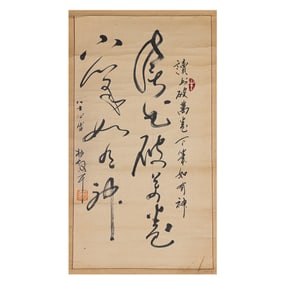 讀書破萬卷下筆如有神
讀書破萬卷
下筆如有神